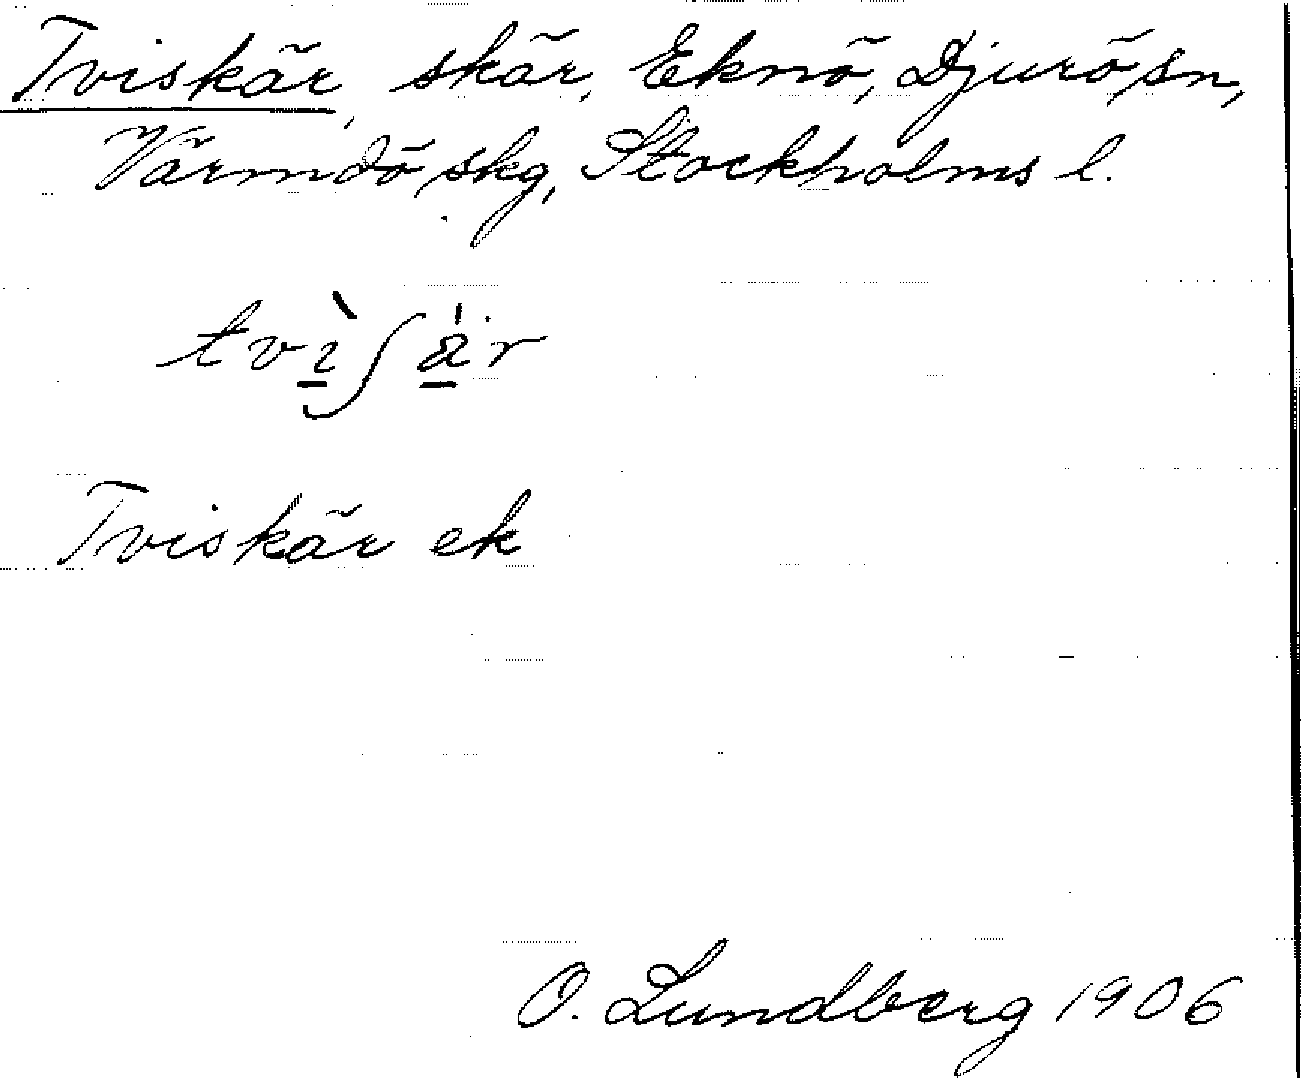 Tviskär, skär, Eknö, Djurö sn,
Värmdö skg, Stockholms l.
Tviskär ek
O. Lundberg 1906